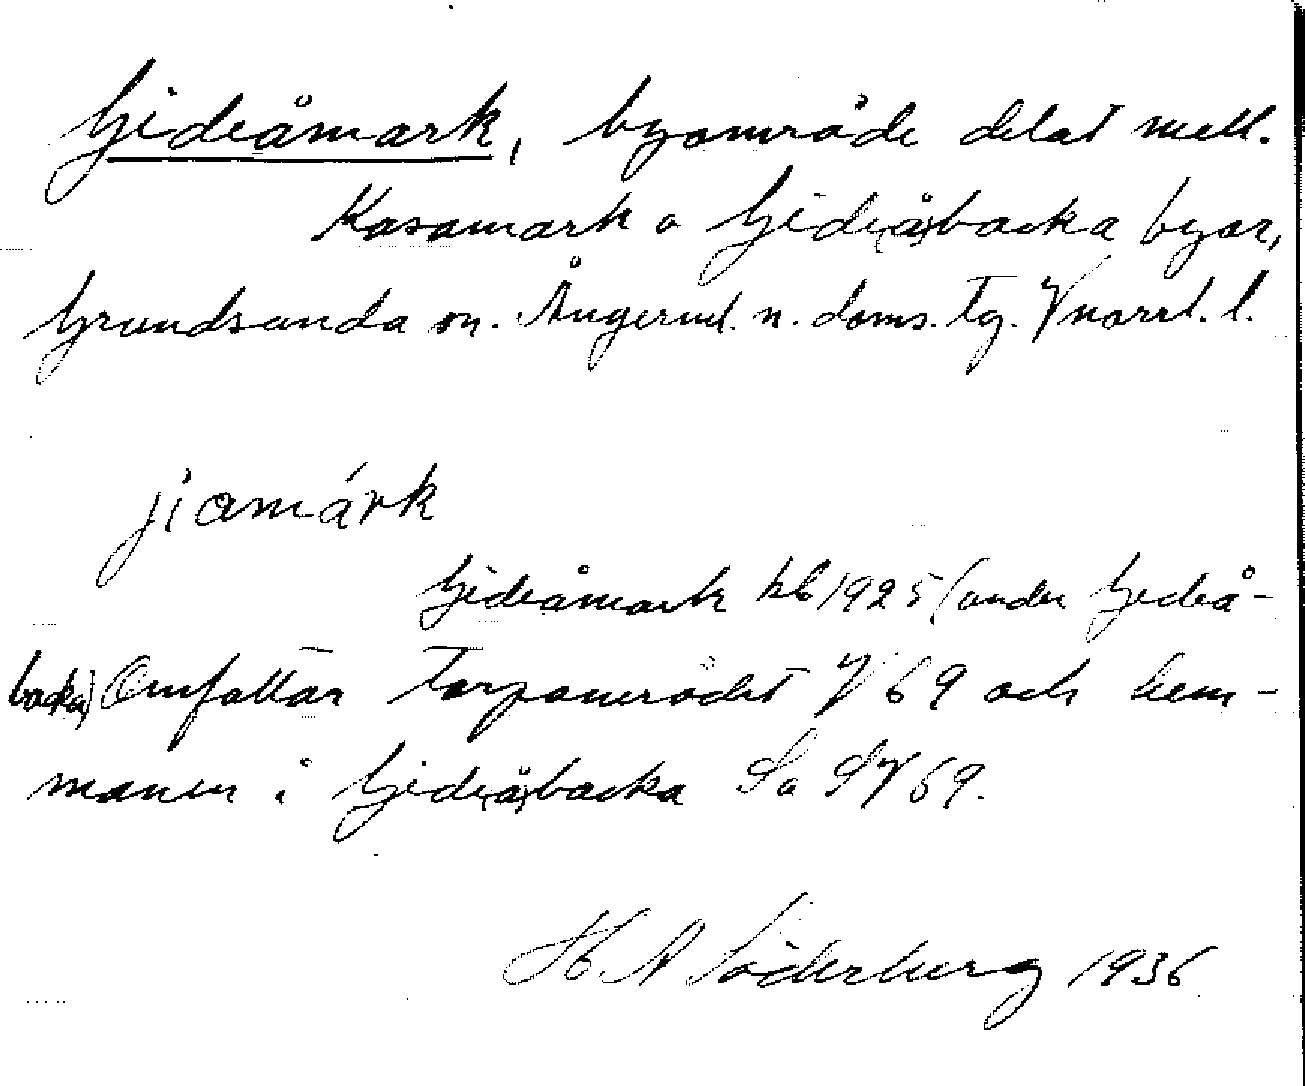 Gideåmark, byområde delat mell.
Kasamark o Gide(å)backa byar,
Grundsunda sn. Ångerml. n. doms. tg. Vnorrl. l.
jiamárk
Gideåmark kb 1925 (under Gideå-
backa) Omfattar torpområdet V 69 och hem-
manen i Gide(å)backa So SV 69.
H A Söderberg 1936